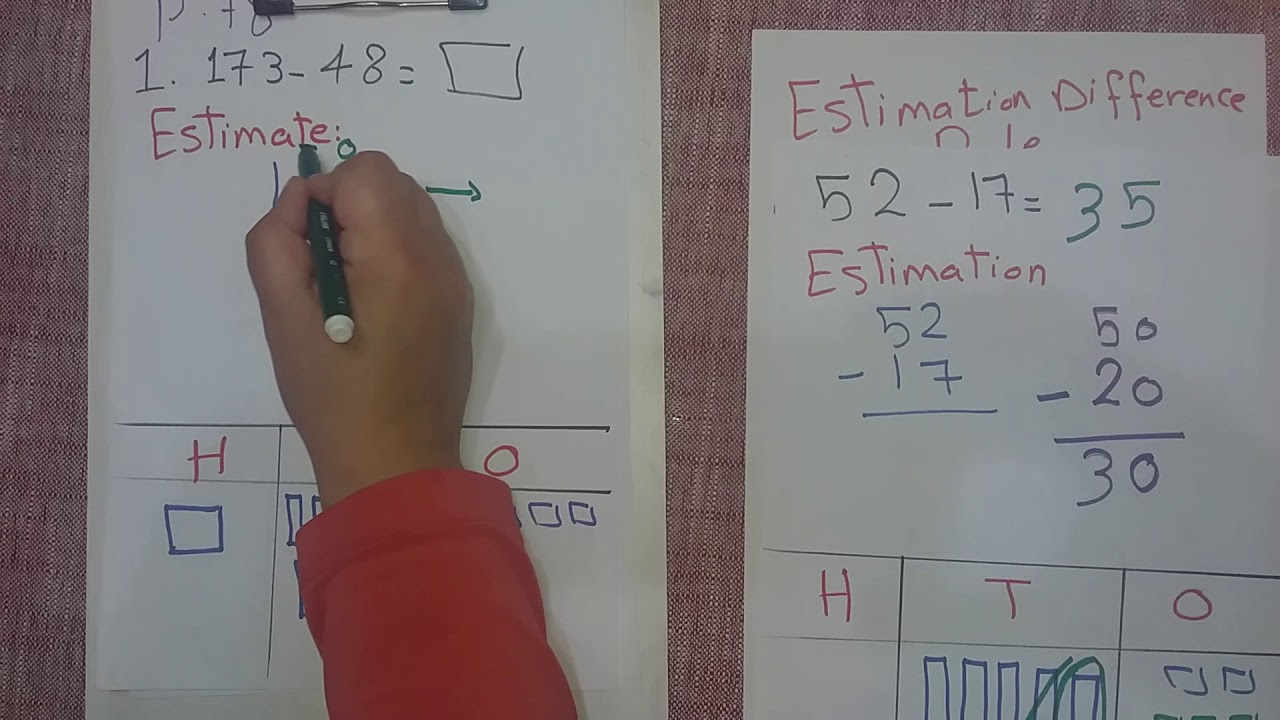 1. 173 - 48 =
Estimate:
0
H O
Estimation Difference
52 - 17 = 35
Estimation
52 50
- 17 - 20
30
H T O